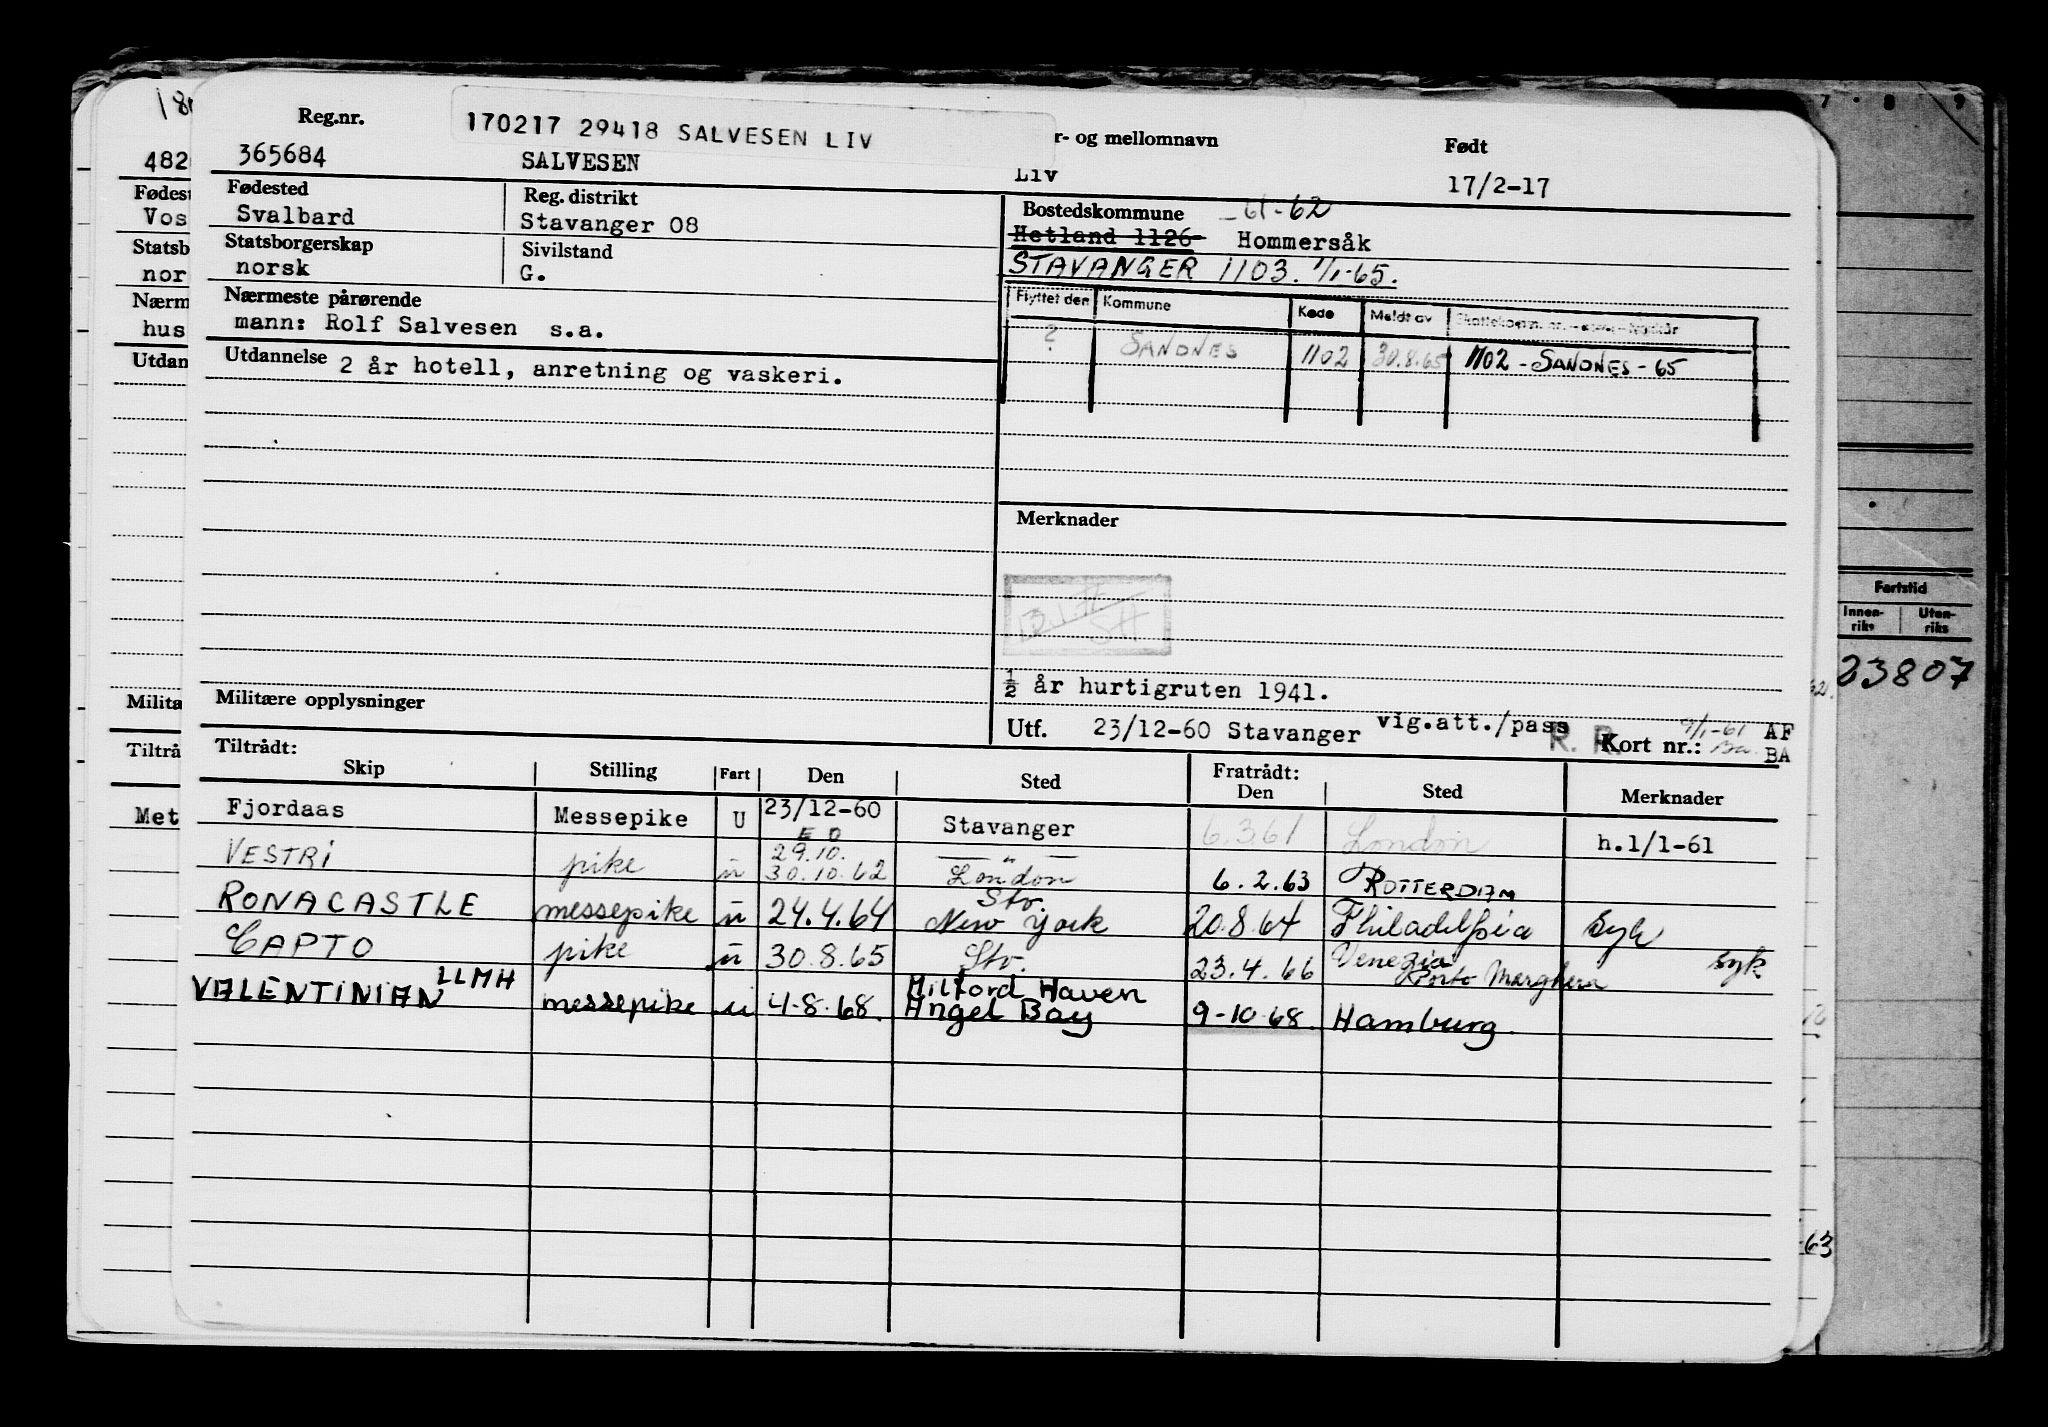 Reg.nr.
170217 29418 SALVESEN LIV
r- og mellomnavn
Født
365684
SALVESEN
Liv
17/2-17
Fødested
Svalbard
Reg. distrikt
Stavanger 08
Bostedskommune 61-62
Hetland 1126 Hommersåk
STAVANGER 1103. 1/1-65.
Statsborgerskap
norsk
Sivilstand
G.
Nærmeste pårørende
mann: Rolf Salvesen s.a.
Utdannelse 2 år hotell, anretning og vaskeri.
Flyttet den Kommune Kode Meldt av
? SANDNES 1102 30.8.65 1102 - SANDNES - 65
Merknader
½ år hurtigruten 1941.
Militære opplysninger
Utf. 23/12-60 Stavanger vig.att./pass
R. R. Kort nr.: 9/1-61 AF
BA
Tiltrådt:
Fratrådt:
Skip Stilling Fart Den Sted Den Sted Merknader
Fjordaas Messepike U 23/12-60 Stavanger 6.3.61 London h.1/1-61
E O
29.10.
VESTRI pike u 30.10.62 London 6.2.63 ROTTERDAM
Stv.
RONACASTLE messepike u 24.4.64 New York 20.8.64 Philadelphia Syk
CAPTO pike u 30.8.65 Stv. 23.4.66 Venezia Porto Marghera syk
VALENTINIAN LLMH messepike u 4-8-68. Milford Haven Angel Bay 9-10-68. Hamburg.
482
Fødest
Vos
Statsb
nor
Nærm
hus
Utdan
Milita
Tiltrå
Met
7 8 9
Fartstid
Innen-riks Uten-riks
23807
-63